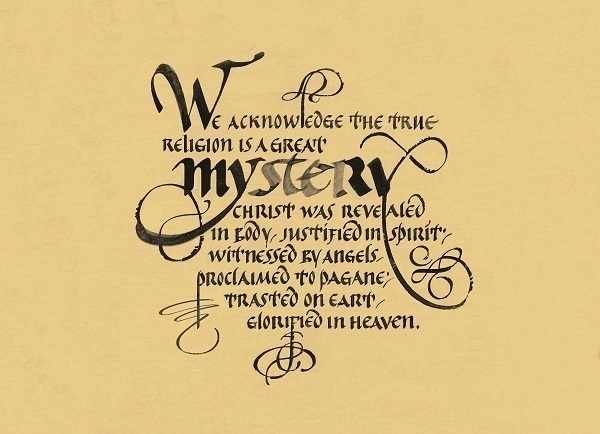 We acknowledge the true
religion is a great
mystery
Christ was revealed
in body, justified in spirit,
witnessed by angels,
proclaimed to pagane,
trasted on eart,
glorified in heaven.